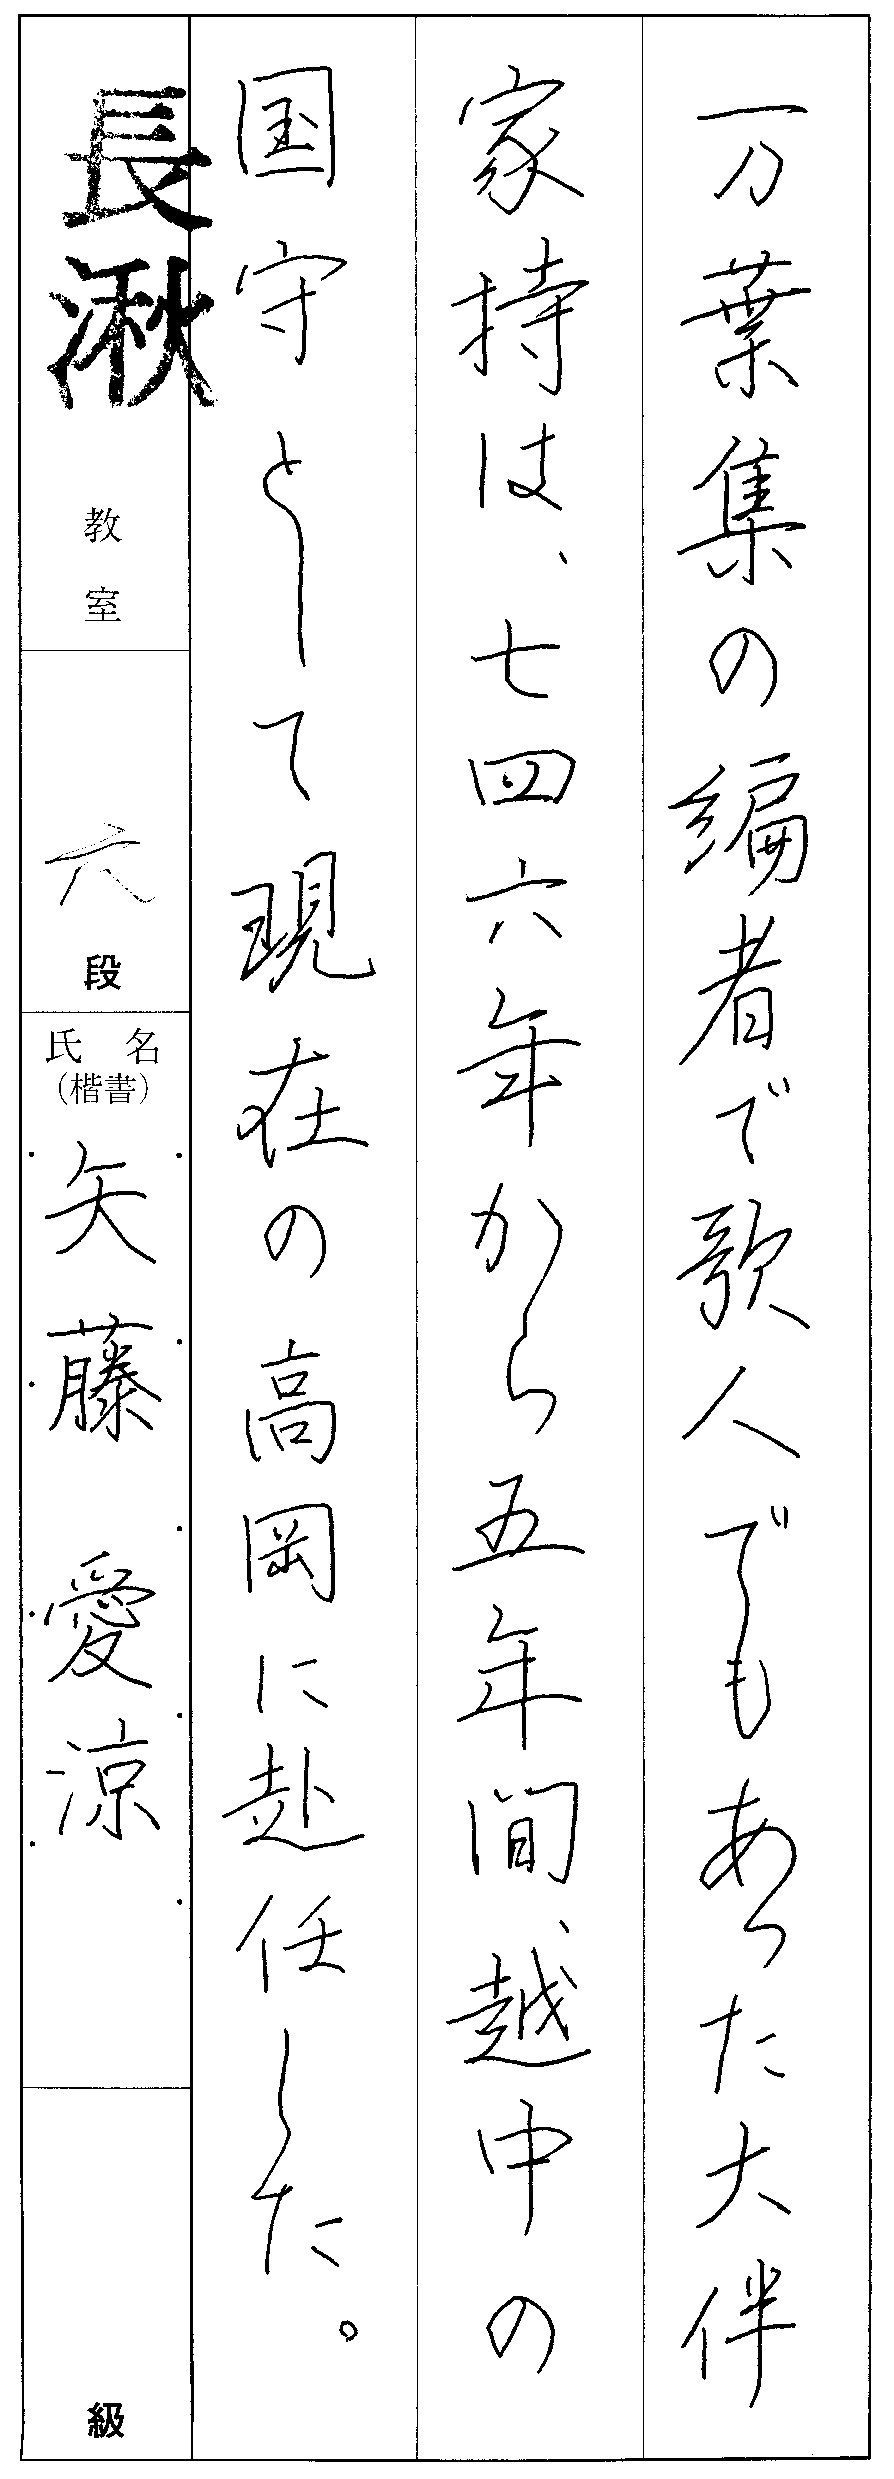 万葉集の編者で歌人でもあった大伴
家持は、七四六年から五年間、越中の
国守として現在の高岡に赴任した。
長湫
教室
六段
氏名
（楷書）
矢藤 愛涼
級